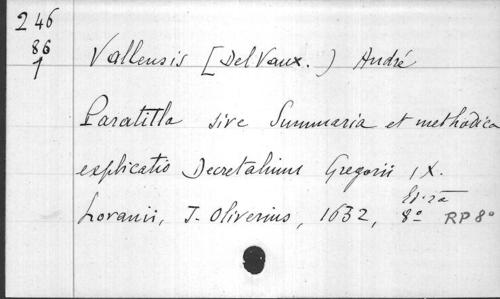 246
86
1
Vallensis [Del Vaux.) André
Paratitla sive Summaria et methodica
explicatio Decretalium Gregorii IX.
Ed. 2a
Lovanii, J. Oliverius, 1632, 8° RP 8°